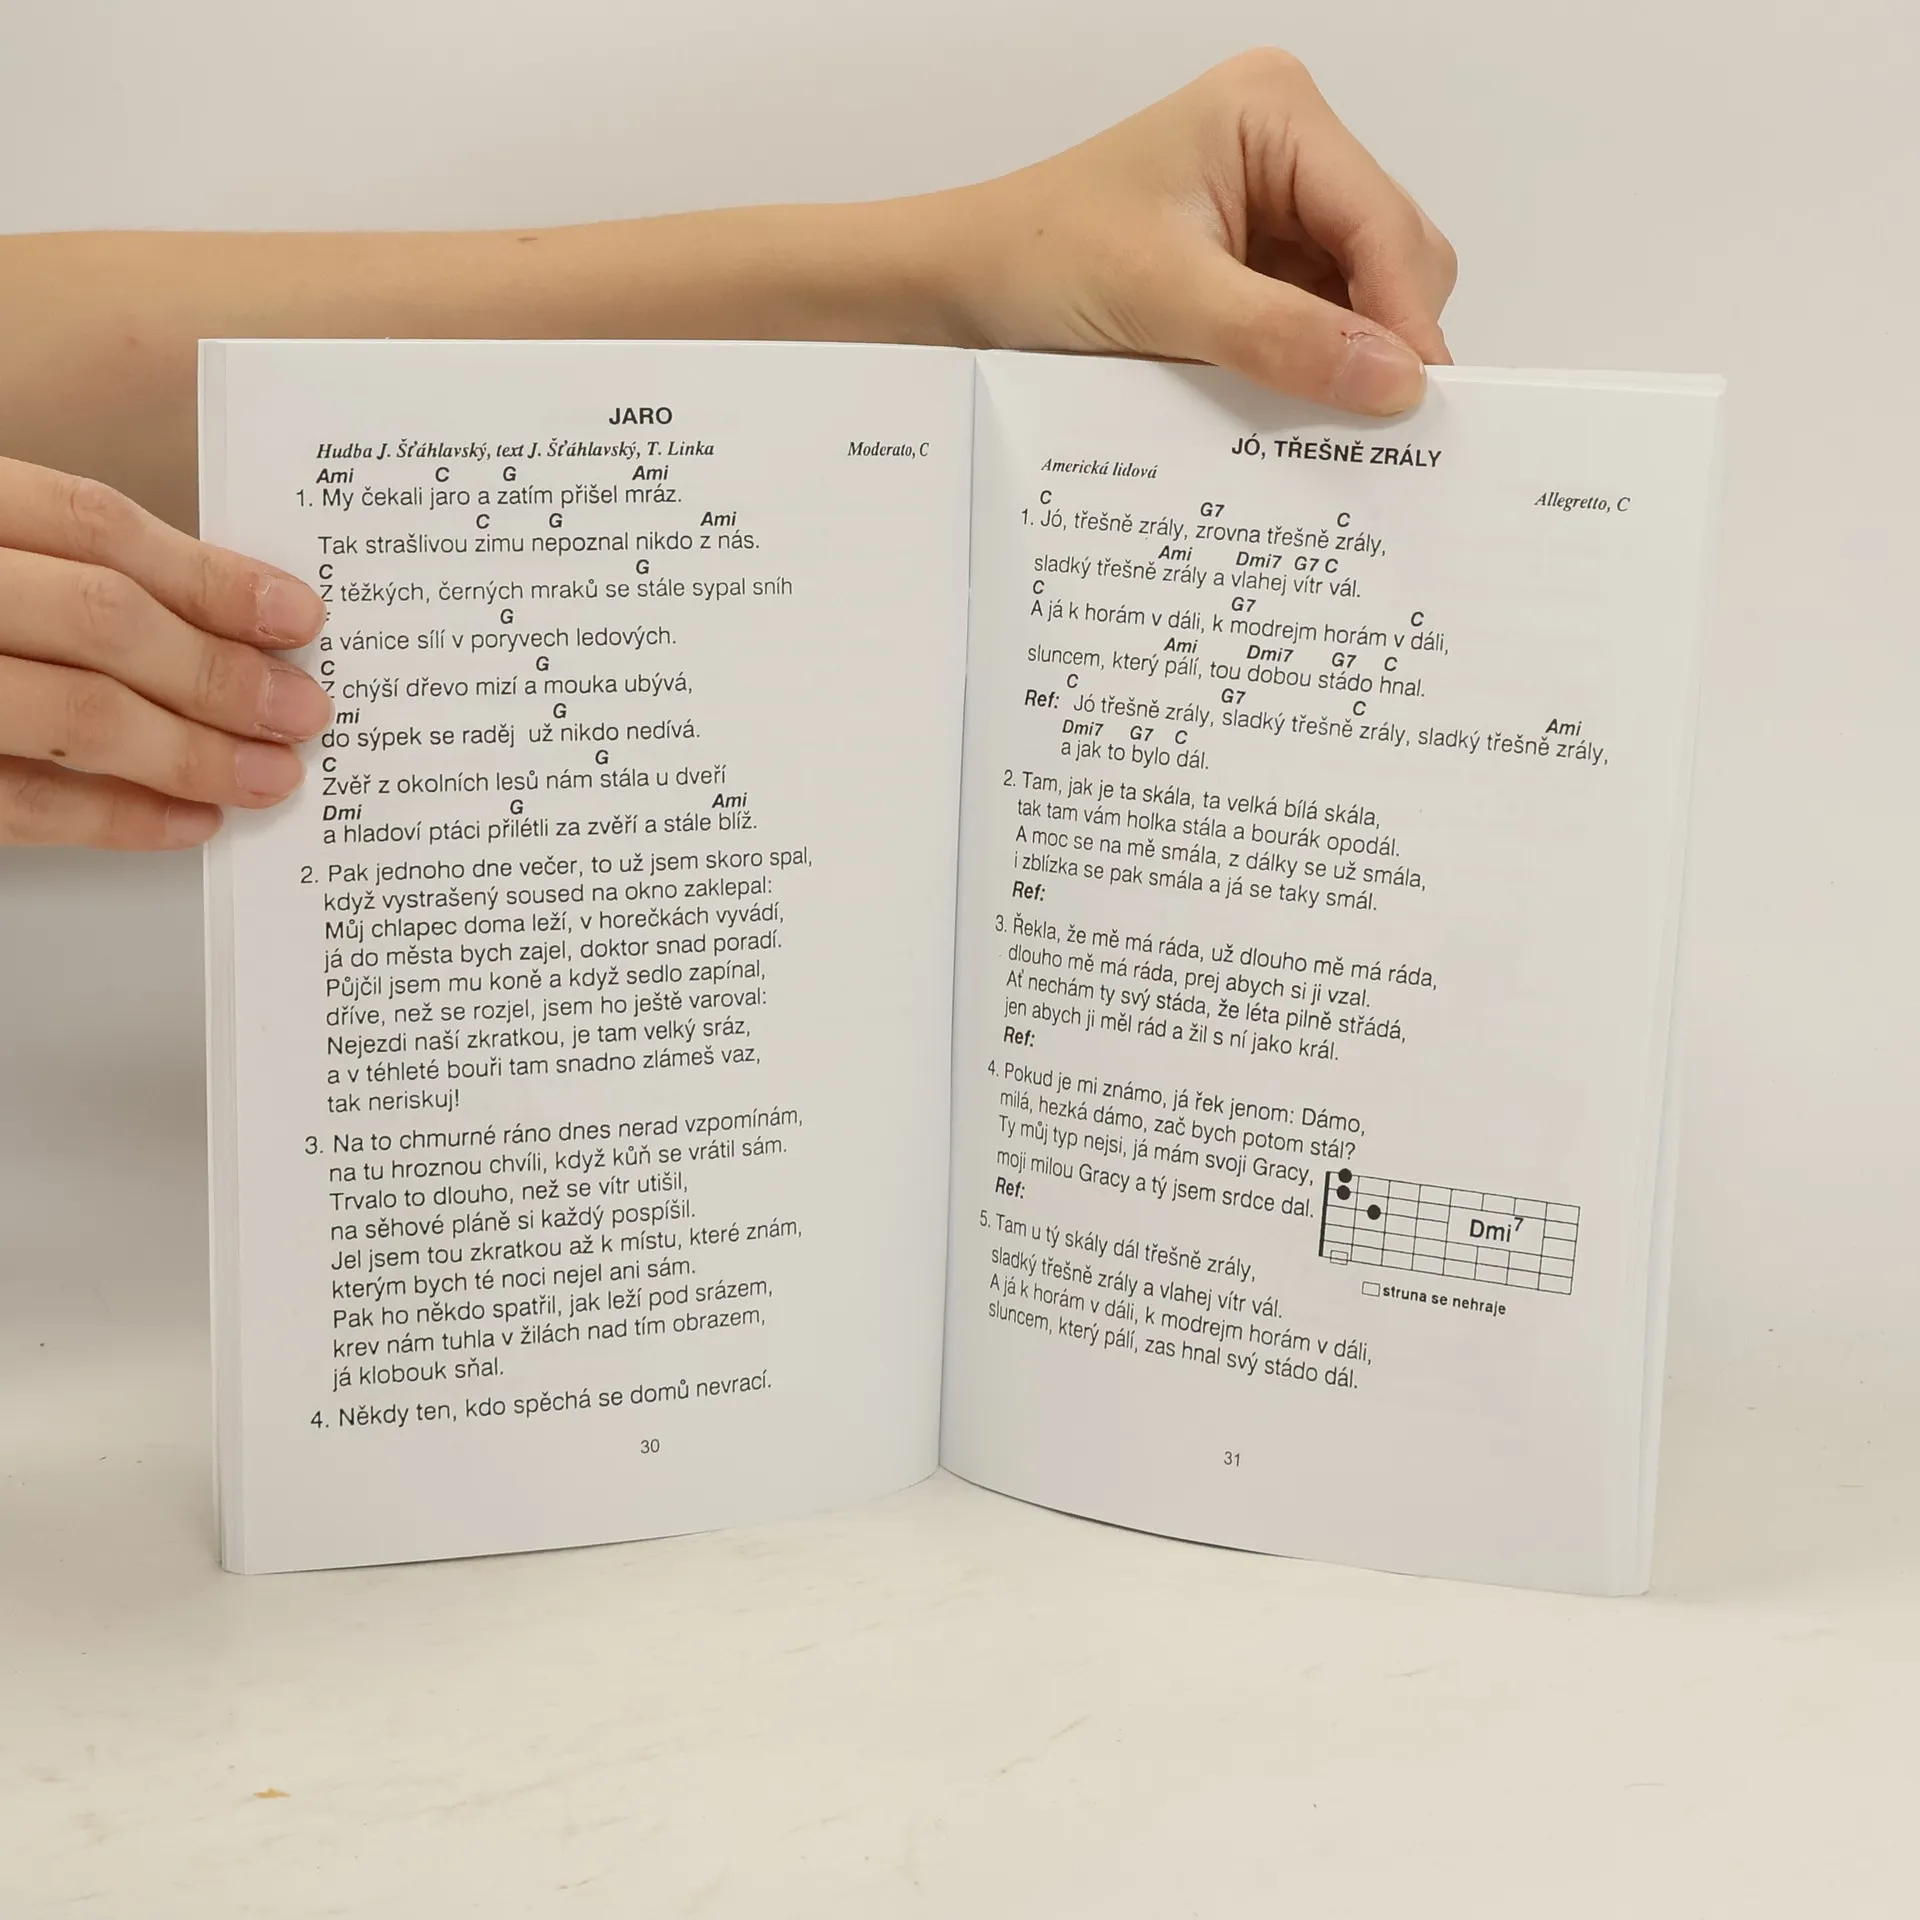 JARO
Hudba J. Šťáhlavský, text J. Šťáhlavský, T. Linka Moderato, C
Ami C G Ami
1. My čekali jaro a zatím přišel mráz.
C G Ami
Tak strašlivou zimu nepoznal nikdo z nás.
C G
Z těžkých, černých mraků se stále sypal sníh
G
a vánice sílí v poryvech ledových.
C G
Z chýší dřevo mizí a mouka ubývá,
mi G
do sýpek se raděj už nikdo nedívá.
C G
Zvěř z okolních lesů nám stála u dveří
Dmi G Ami
a hladoví ptáci přilétli za zvěří a stále blíž.
2. Pak jednoho dne večer, to už jsem skoro spal,
když vystrašený soused na okno zaklepal:
Můj chlapec doma leží, v horečkách vyvádí,
já do města bych zajel, doktor snad poradí.
Půjčil jsem mu koně a když sedlo zapínal,
dříve, než se rozjel, jsem ho ještě varoval:
Nejezdi naší zkratkou, je tam velký sráz,
a v téhleté bouři tam snadno zlámeš vaz,
tak neriskuj!
3. Na to chmurné ráno dnes nerad vzpomínám,
na tu hroznou chvíli, když kůň se vrátil sám.
Trvalo to dlouho, než se vítr utišil,
na sěhové pláně si každý pospíšil.
Jel jsem tou zkratkou až k místu, které znám,
kterým bych té noci nejel ani sám.
Pak ho někdo spatřil, jak leží pod srázem,
krev nám tuhla v žilách nad tím obrazem,
já klobouk sňal.
4. Někdy ten, kdo spěchá se domů nevrací.
30
JÓ, TŘEŠNĚ ZRÁLY
Americká lidová
Allegretto, C
C G7 C
1. Jó, třešně zrály, zrovna třešně zrály,
Ami Dmi7 G7 C
sladký třešně zrály a vlahej vítr vál.
C G7 C
A já k horám v dáli, k modrejm horám v dáli,
Ami Dmi7 G7 C
sluncem, který pálí, tou dobou stádo hnal.
C G7 C Ami
Ref: Jó třešně zrály, sladký třešně zrály, sladký třešně zrály,
Dmi7 G7 C
a jak to bylo dál.
2. Tam, jak je ta skála, ta velká bílá skála,
tak tam vám holka stála a bourák opodál.
A moc se na mě smála, z dálky se už smála,
i zblízka se pak smála a já se taky smál.
Ref:
3. Řekla, že mě má ráda, už dlouho mě má ráda,
dlouho mě má ráda, prej abych si ji vzal.
Ať nechám ty svý stáda, že léta pilně střádá,
jen abych ji měl rád a žil s ní jako král.
Ref:
4. Pokud je mi známo, já řek jenom: Dámo,
milá, hezká dámo, zač bych potom stál?
Ty můj typ nejsi, já mám svoji Gracy,
moji milou Gracy a tý jsem srdce dal.
Ref:
5. Tam u tý skály dál třešně zrály,
sladký třešně zrály a vlahej vítr vál.
A já k horám v dáli, k modrejm horám v dáli,
sluncem, který pálí, zas hnal svý stádo dál.
Dmi7
struna se nehraje
31